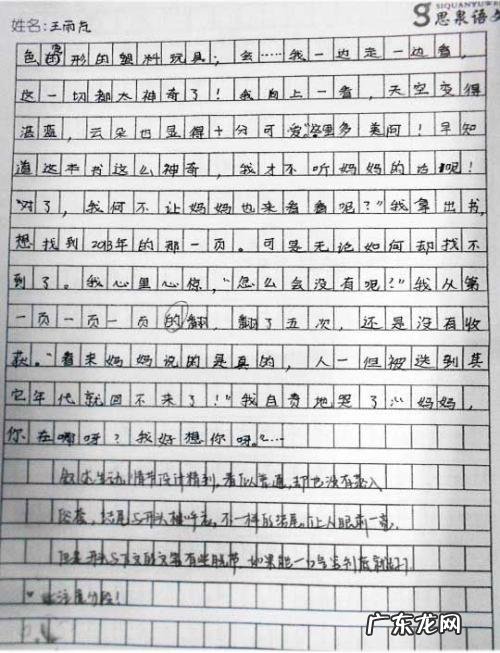 SIQUANYUWEN
思泉语文
姓名:王雨
色 形的塑料玩具；会……我一边走一边看，
这一切都太神奇了！我向上一看，天空变得
湛蓝，云朵也显得十分可爱。这里多美阿！早知
道这本书这么神奇，我才不听妈妈的话呢！
“对了，我何不让妈妈也来看看呢？”我拿出书，
想找到2013年的那一页。可是无论如何却找不
到了。我心里心惊，“怎么会没有呢？”我从第
一页一页一页的翻，翻了五次，还是没有收
获。“看来妈妈说的是真的，人一但被送到其
它年代就回不来了！”我自责地哭了 妈妈，
你在哪呀？我好想你呀。”…
叙述生动，情节设计精到，看似普通，却也没有落入
俗套，结尾与开头相呼应，不一样的结尾，让人眼前一亮，
但是开头与下文的文笔有些脱节，如果能一
注意分段！
广东龙网